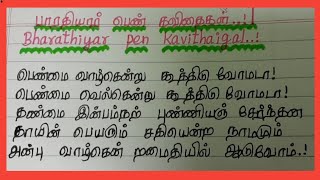 பாரதியார் பெண் கவிதைகள்..!
Bharathiyar pen Kavithaigal..!
பெண்மை வாழ்கென்று கூத்திடு வோமடா!
பெண்மை வெல்கென்று கூத்திடு வோமடா!
தண்மை இன்பம்நற் புண்ணியஞ் சேர்த்தன
தாயின் பெயரும் சதியென்ற நாமமும்
அன்பு வாழ்கென் றமைதியில் ஆடுவோம்.!